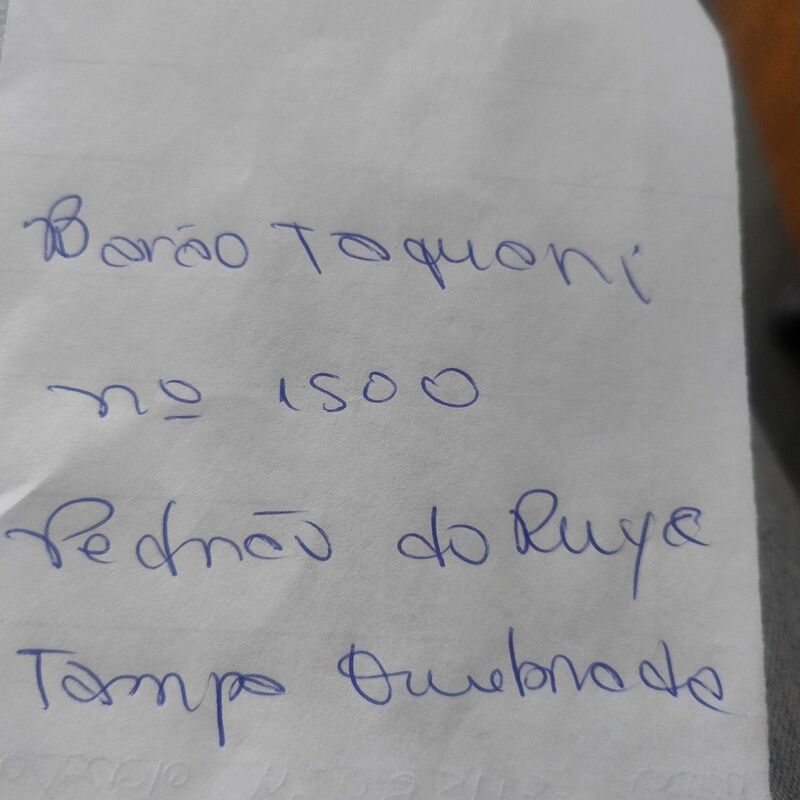 Barão Taquari
nº 1500
Pedrão do Ruye
Tampa Quebrada